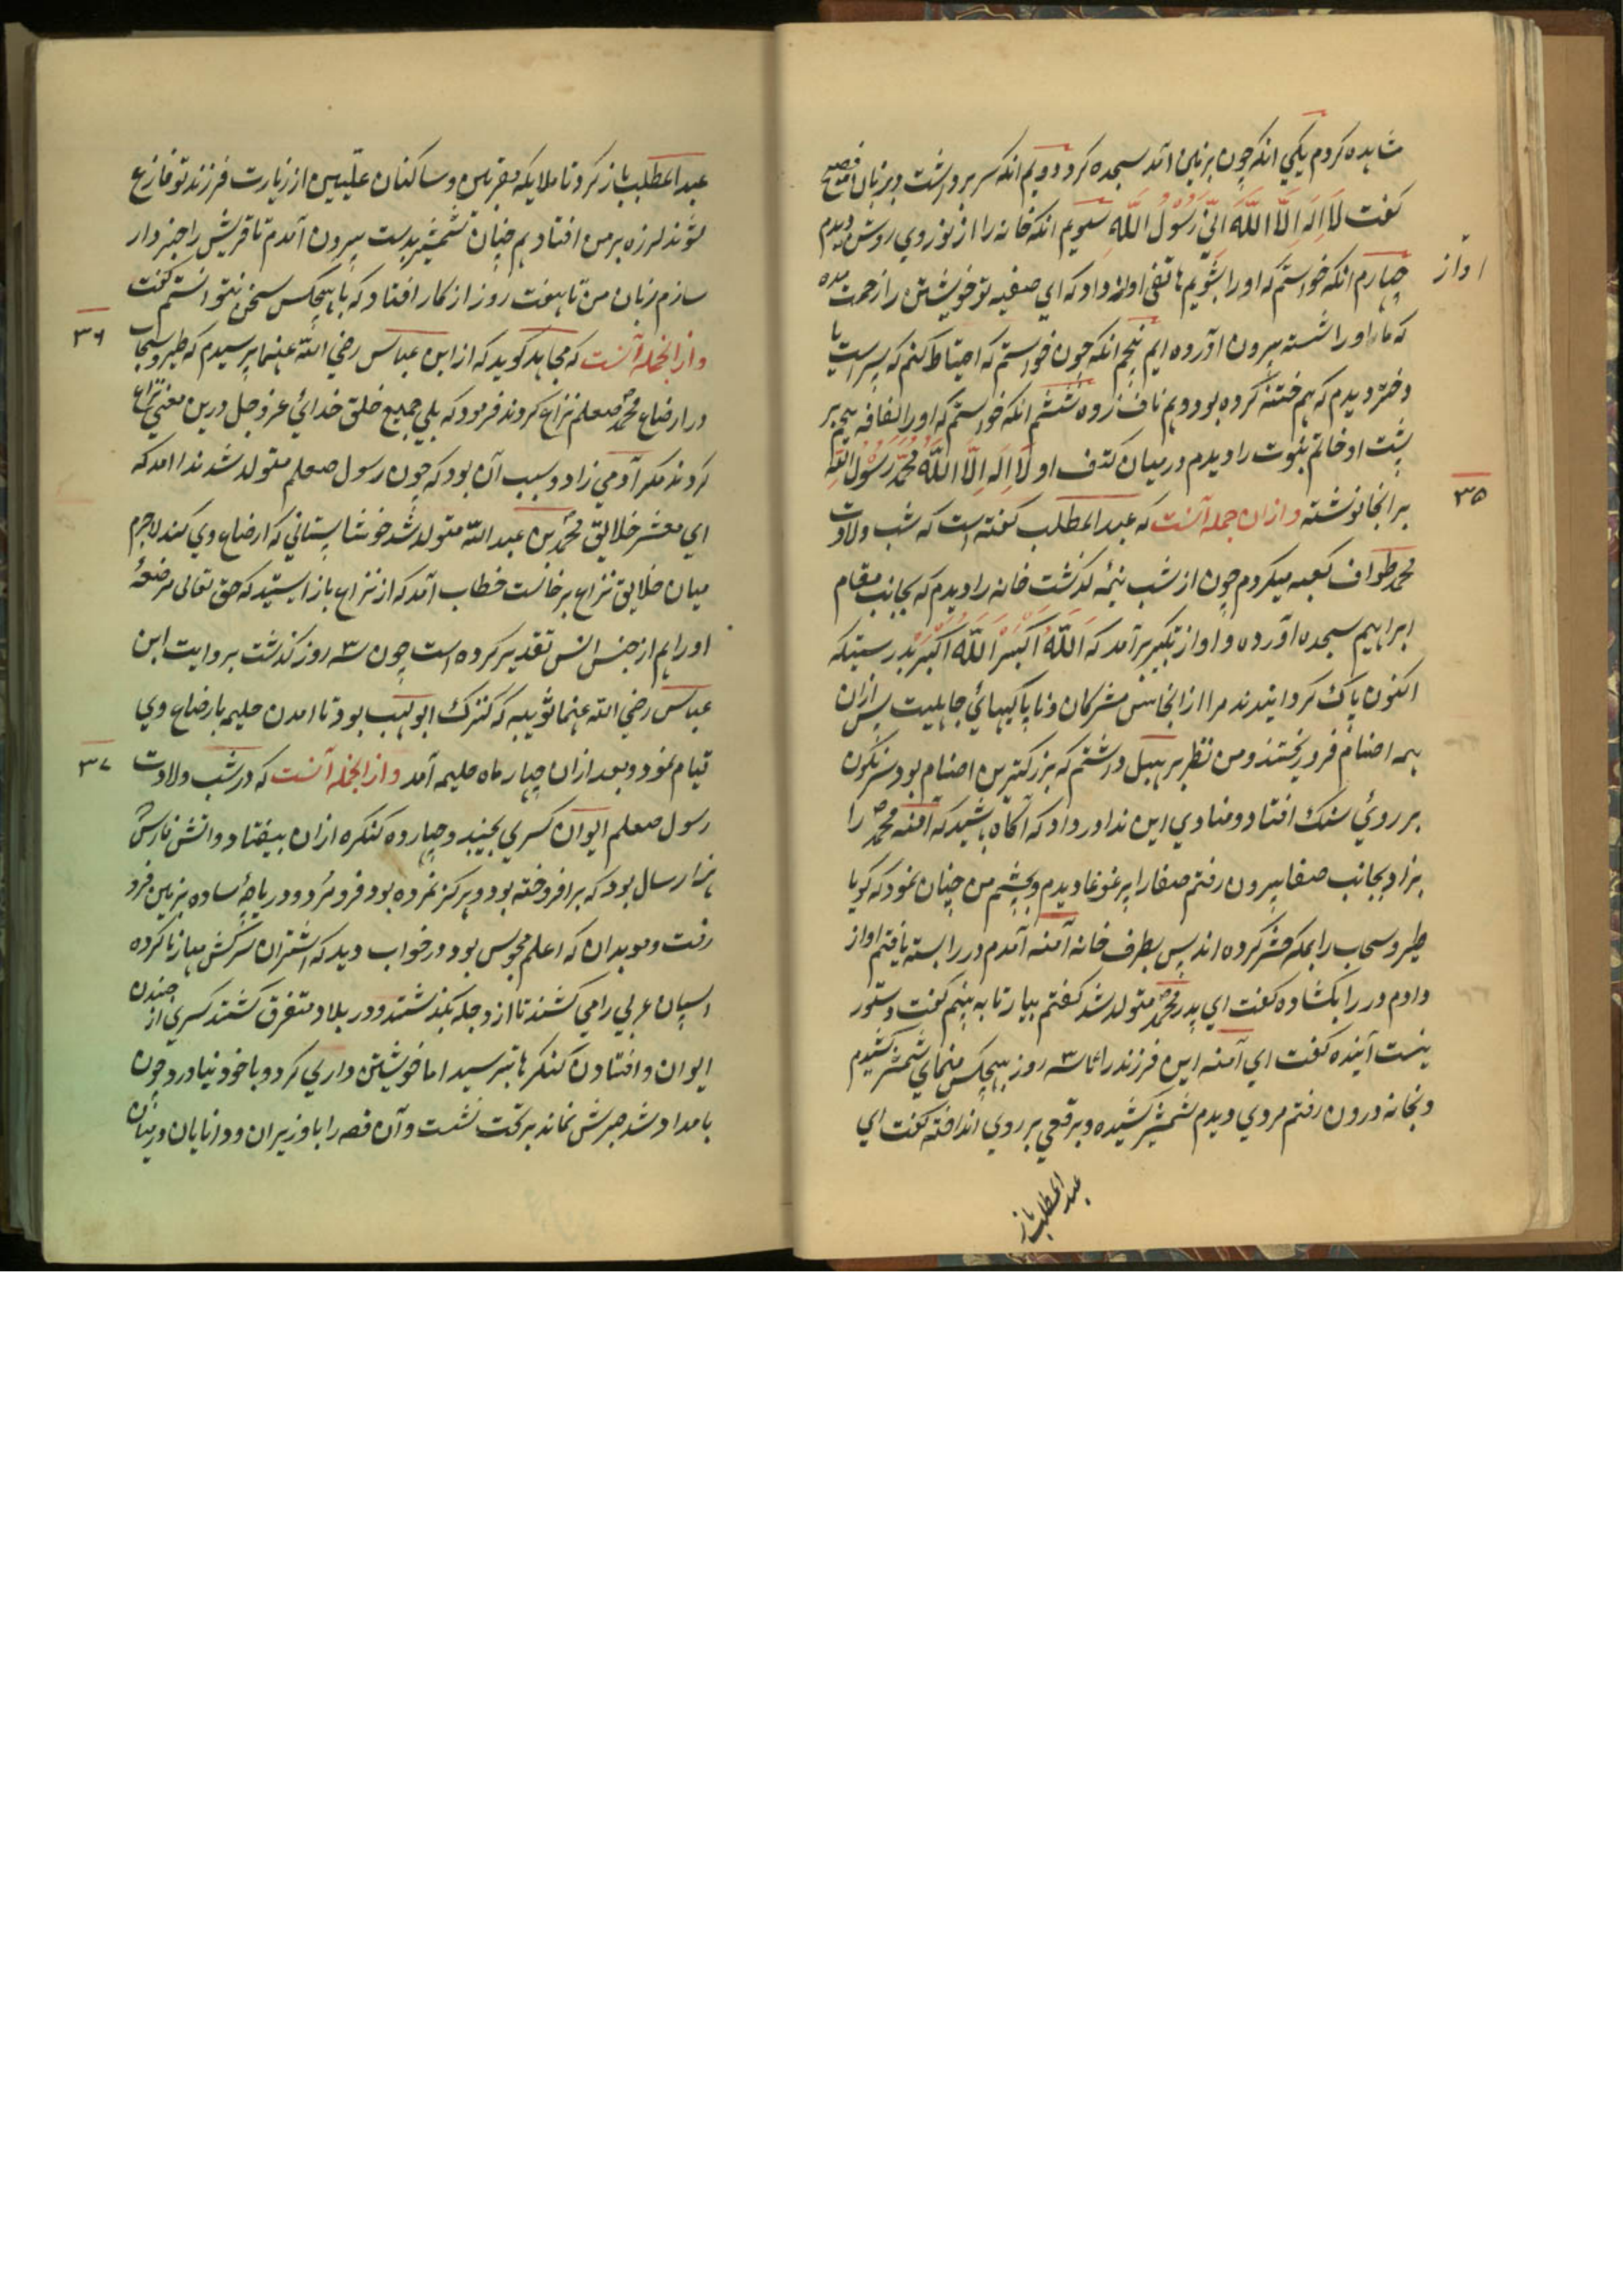 مشاهده کردم یکی انکه چون بزمین آمد سجده کرد دویم انکه سر برداشت و بزبان فصیح
گفت لَا اِلَهَ اِلَّا اللَّهُ اِنّی رَسُولُ اللَّه سیویم انکه خانه را از نور روی روشن دیدم
چهارم انکه خواستم که او را بشویم هاتفی اواز داد که ای صفیه تو خویشتن را زحمت مده
اواز
که ما او را شسته بیرون آورده ایم پنجم انکه چون خواستم که احتیاط کنم که پسر است یا
دختر دیدم که هم ختنه کرده بود و هم ناف زده ششم انکه خواستم که او را لفافه پیچم بر
پشت او خاتم نبوت را دیدم در میان کتف او لَا اِلَهَ اِلَّا اللَّهُ مُحَمَّدٌ رَسُولُ اللَّهِ
۳۵
بر انجا نوشته و ازان جمله آنست که عبد المطلب گفته است که شب ولادت
محمد طواف کعبه میکردم چون از شب نیمه گذشت خانه را دیدم که بجانب مقام
ابراهیم سجده آورده و اواز تکبیر برآمد که اَللَّهُ اَکْبَرْ اَللَّهُ اَکْبَرْ بدرستیکه
اکنون پاک گردانیدند مرا از انجاس مشرکان و ناپاکیهائی جاهلیت پس ازان
همه اصنام فرو ریختند و من نظر بر هبل داشتم که بزرکترین اصنام بود سرنگون
بر روئی سنک افتاد و منادی این ندا در داد که آگاه باشید که آمنه محمد را
بزاد بجانب صفا بیرون رفتم صفا را پر غوغا دیدم و بچشم من چنان نمود که گویا
طیر و سحاب را بمکه حشر کرده اند پس بطرف خانه آمنه آمدم در را بسته یافتم اواز
دادم در را بکشاده گفت ای پدر محمد متولد شد گفتم بیار تا به بینم گفت دستور
نیست آینده گفت ای آمنه این فرزند را تا سه روز بهیچکس منمای شمشیر کشیدم
و بخانه درون رفتم مردی دیدم شمشیر کشیده و برقعی بر روی انداخته گفت ای
عبد المطلب باز
عبد المطلب باز کرد تا ملایکه مقربین و ساکنان علّیین از زیارت فرزند تو فارغ
شوند لرزه بر من افتاد هم چنان شمشیر بدست بیرون آمدم تا قریش را خبردار
سازم زبان من تا هفت روز از کار افتاد که با هیچکس سخن نتوانستم گفت
۳۶
و از انجمله آنست که مجاهد گوید که از ابن عباس رضی الله عنهما پرسیدم که طیر و سحاب
در ارضاع محمد صعلم نزاع کردند فرمود که بلی جمیع خلق خدائی عز و جل درین معنی نزاع
کردند مگر آدمی زاد و سبب آن بود که چون رسول صعلم متولد شد ندا آمد که
ای معشر خلایق محمد بن عبد الله متولد شد خوشا پستانی که ارضاع وی کند لاجرم
میان خلایق نزاع برخاست خطاب آمد که از نزاع باز ایستید که حق تعالی مرضعهٔ
او را هم از جنس انس تقدیر کرده است چون سه ۳ روز گذشت بروایت ابن
عباس رضی الله عنهما ثویبه که کنیزک ابو لهب بود تا امدن حلیمه بارضاع وی
قیام نمود و بعد ازان چهار ماه حلیمه آمد و از انجمله آنست که در شب ولادت
۳۷
رسول صعلم ایوان کسری بجنبید و چهارده کنکره ازان بیفتاد و اتش فارس
هزار سال بود که برافروخته بود و هرکز نمرده بود فرو مرد و دریاچهٔ ساده بزمین فرو
رفت و موبدان که اعلم مجوس بود در خواب دید که اشتران سرکش مهار ناکرده
اسپان عربی را می کشند تا از دجله بگذشتند و در بلاد متفرق گشتند کسری از جنبیدن
ایوان و افتادن کنگرها بترسید اما خویشتن داری کرد و با خود نیاورد و چون
بامداد شد صبرش نماند بر تخت نشست و آن قصه را با وزیران و دانایان در میان